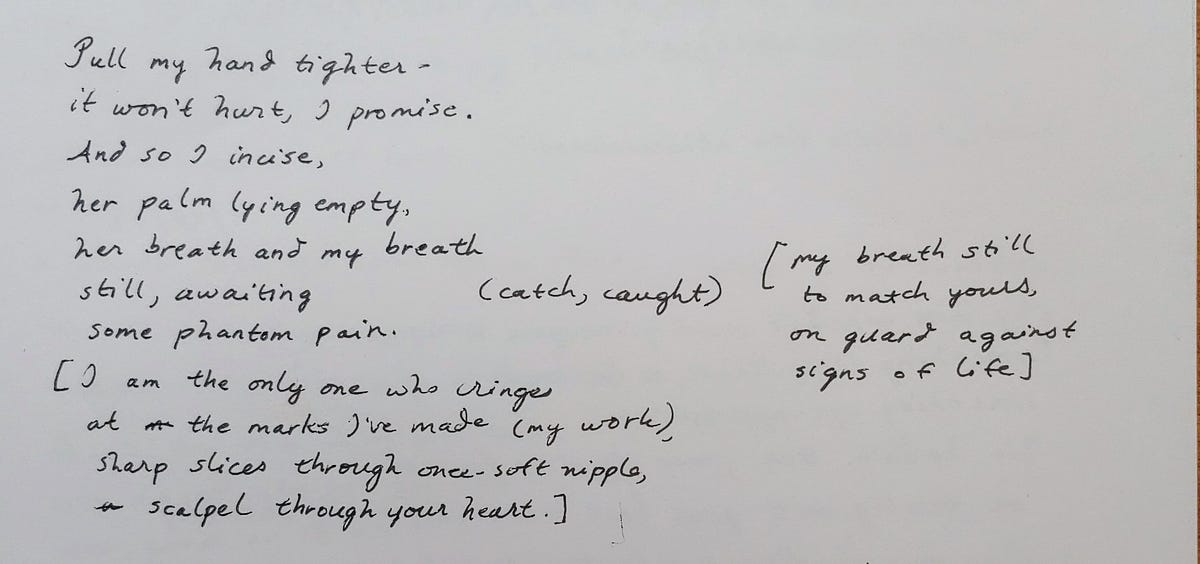 Pull my hand tighter -
it won't hurt, I promise.
And so I incise,
her palm lying empty,
her breath and my breath
still, awaiting
(catch, caught)
some phantom pain.
[I am the only one who cringes
at the marks I've made (my work),
sharp slices through once-soft nipple,
scalpel through your heart.]
[my breath still
to match yours,
on guard against
signs of life]